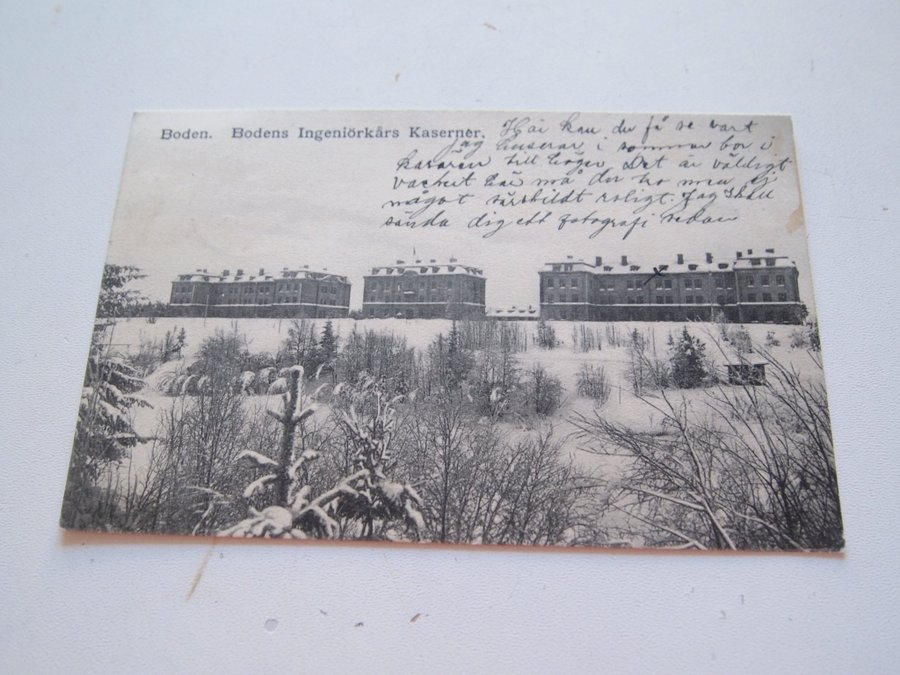 Boden. Bodens Ingeniörkårs Kaserner.
Här kan du få se vart
jag huserar i sommar bor i
kasären till höger. Det är väldigt
vackert här må du tro men ej
något särskildt roligt. Jag skall
sända dig ett fotografi sedan